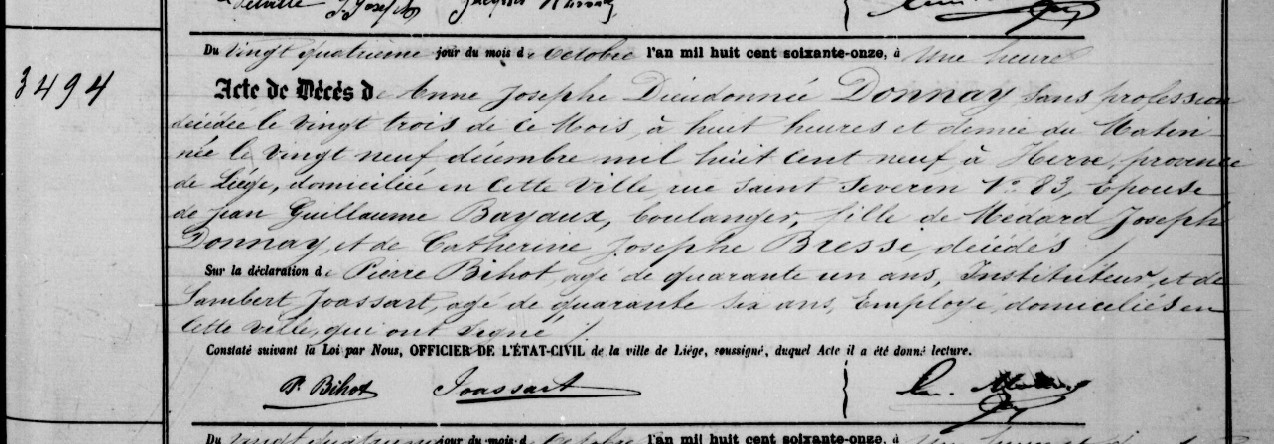 Delville J. Joseph
Du vingt quatrieme jour du mois d'octobre l'an mil huit cent soixante-onze, à Une heure
3494
Acte de Décès de Anne Josephe Dieudonnée Donnay, sans profession
décédée le vingt trois de ce Mois, à huit heures et demie du Matin
née le vingt neuf décembre mil huit cent neuf, à Herve, province
de Liége, domiciliée en cette ville, rue Saint Severin N° 83, épouse
de Jean Guillaume Bayaux, boulanger, fille de Médard Joseph
Donnay, et de Catherine Josephe Bressi, décédés /
Sur la déclaration de Pierre Bihot, agé de quarante un ans, Instituteur, et de
Lambert Joassart, agé de quarante six ans, Employé, domiciliés en
cette ville, qui ont signé /
Constaté suivant la Loi par Nous, OFFICIER DE L'ÉTAT-CIVIL de la ville de Liége, soussigné, duquel Acte il a été donné lecture.
P. Bihot Joassart
Du vingt quatrieme jour du mois d'octobre l'an mil huit cent soixante-onze, à Une heure et